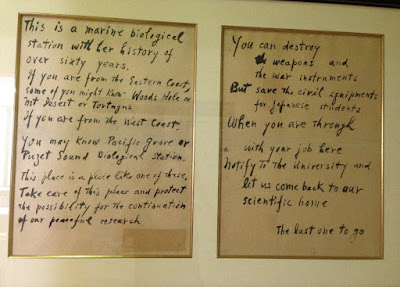 This is a marine biological
station with her history of
over sixty years.
If you are from the Eastern Coast,
some of you might know Woods Hole or
Mt Desert or Tortugas.
If you are from the West Coast,
You may know Pacific Grove or
Puget Sound Biological Station.
This place is a place like one of these,
Take care of this place and protect
the possibility for the continuation
of our peaceful research.
You can destroy
the weapons and
the war instruments
But save the civil equipments
for Japanese students
When you are through
with your job here
Notify to the University and
let us come back to our
scientific home
The last one to go